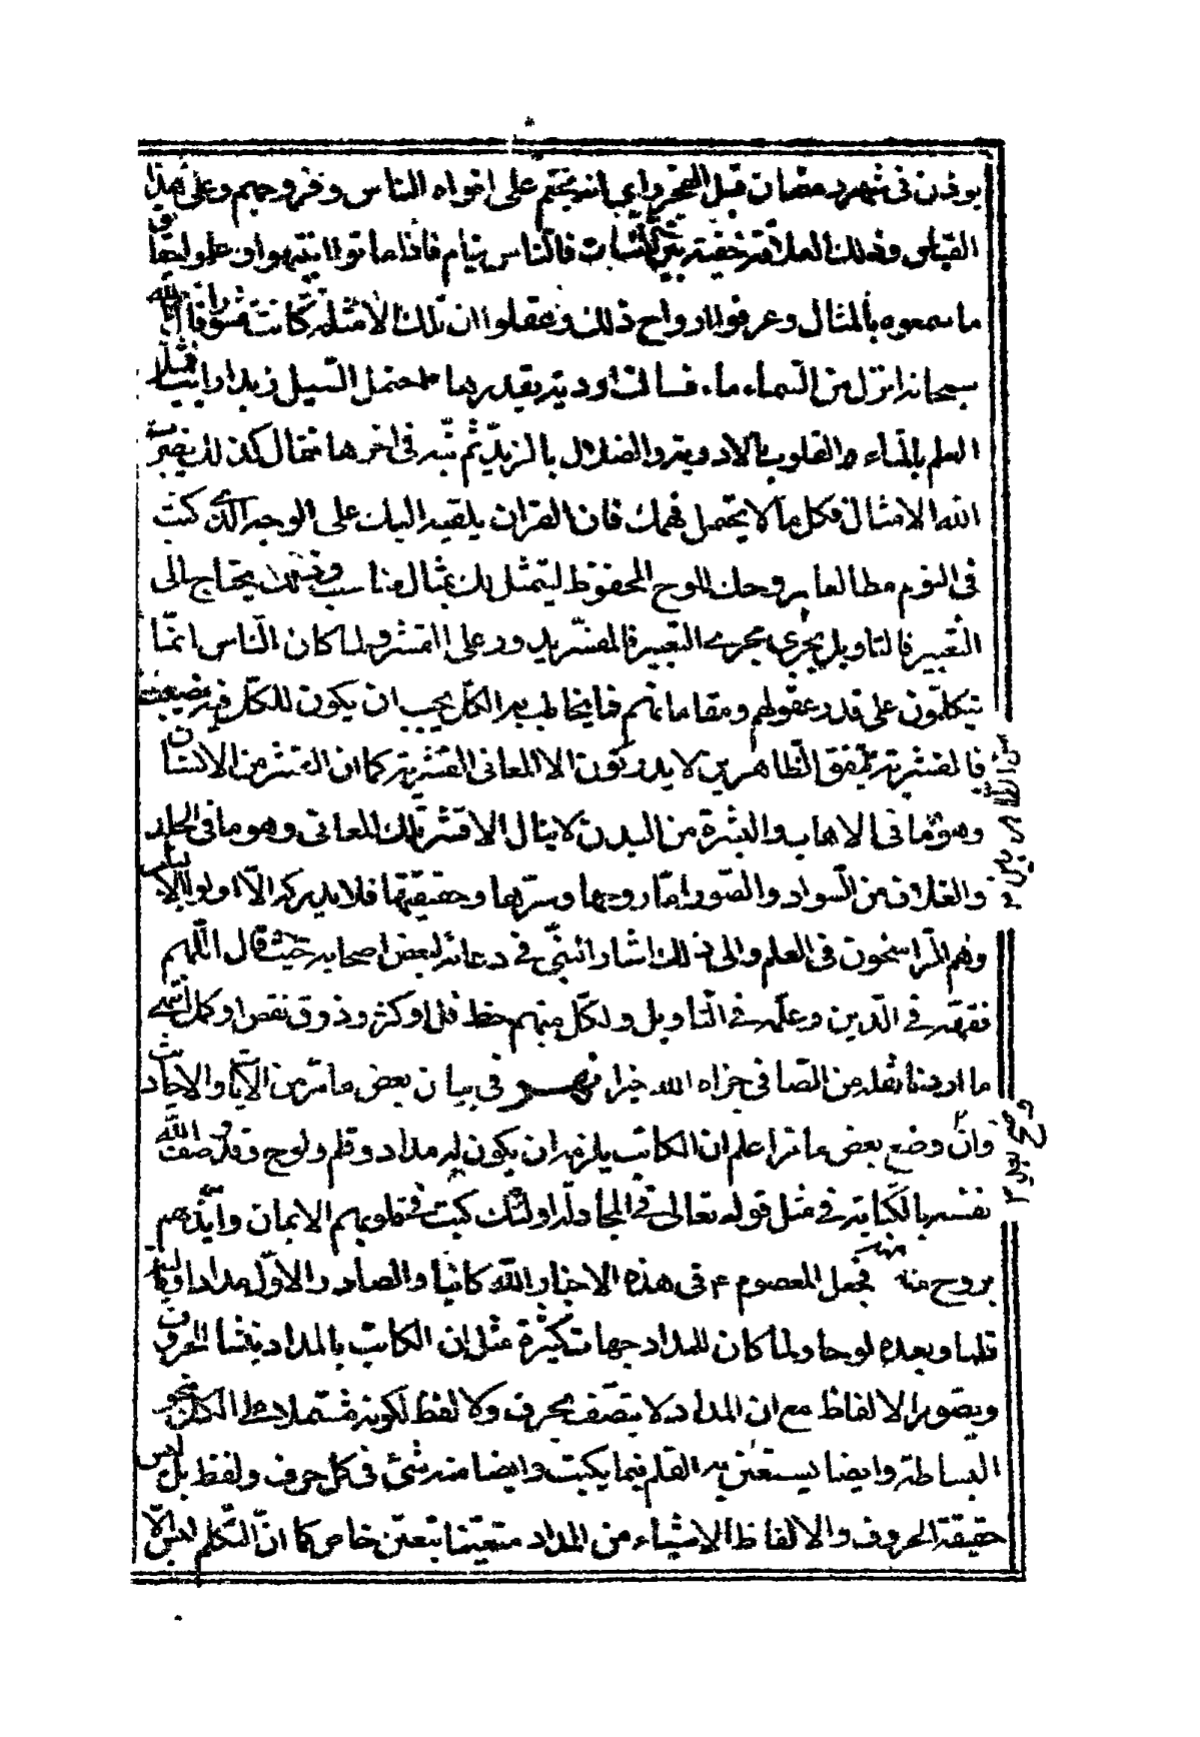 يوذن فى شهر رمضان قبل الفجر راى انه يختم على افواه الناس و فروجهم وعلى هذا
القياس وذلك لعلاقة خفية بين النشات فالناس نيام فاذا ماتوا انتبهوا و علموا حقايق
ما سمعوه بالمثال وعرفوا ارواح ذلك وعقلوا ان تلك الامثلة كانت قشورا قال الله
سبحانه انزل من السماء ماء فسالت اودية بقدرها فاحتمل السيل زبدا رابيا فمثل
العلم بالماء والقلوب بالاودية والضلال بالزبد ثم نبه فى اخرها فقال كذلك يضرب
الله الامثال فكل ما لا يحتمل فهمك فان القران يلقيه اليك على الوجه الذى كنت
فى النوم مطالعا بروحك اللوح المحفوظ ليتمثل لك بمثال مناسب وذلك يحتاج الى
التعبير فالتاويل يجرى مجرى التعبير فالمفسر يدور على القشر ولما كان الناس انما
يتكلمون على قدر عقولهم ومقاماتهم فما يخاطب به الكل يجب ان يكون للكل فيه نصيب
فالقشرية من الظاهرين لا يدركون الا المعانى القشرية كما ان القشر من الانسان
وهو ما فى الاهاب والبشرة من البدن لا ينال الا قشر تلك المعانى وهو ما فى الجلد
والغلاف من السواد والصور واما روحها وسرها وحقيقتها فلا يدركه الا اولوا الالباب
وهم الراسخون فى العلم والى ذلك اشار النبى فى دعائه لبعض اصحابه حيث قال اللهم
فقهه فى الدين وعلمه فى التاويل ولكل منهم حظ قل او كثر وذوق نقص او كمل انتهى
ما اردنا نقله من الصافى جزاه الله خيرا فى بيان بعض ما مر من الايات والاحاديث
وان وضع بعض ما مر اعلم ان الكاتب يلزمه ان يكون له مداد وقلم ولوح وقد وصف الله
نفسه بالكتابة فى مثل قوله تعالى فى المجادلة اولئك كتب فى قلوبهم الايمان وايدهم
بروح منه فجعل المعصوم ع فى هذه الاخبار الله كاتبا والصادر الاول مدادا وثانيه
قلما وبعده لوحا ولما كان للمداد جهات كثيرة مثل ان الكاتب بالمداد ينشا الحروف
ويصور الالفاظ مع ان المداد لا يتصف بحرف ولا لفظ لكونه مشتملا على الكل بنحو
البساطة وايضا يستعين به القلم فيما يكتب وايضا منه شئ فى كل حرف ولفظ بل ليس
حقيقة الحروف والالفاظ الا شيئاء من المداد متعينا بتعين خاص كما ان التكلم ليس الا